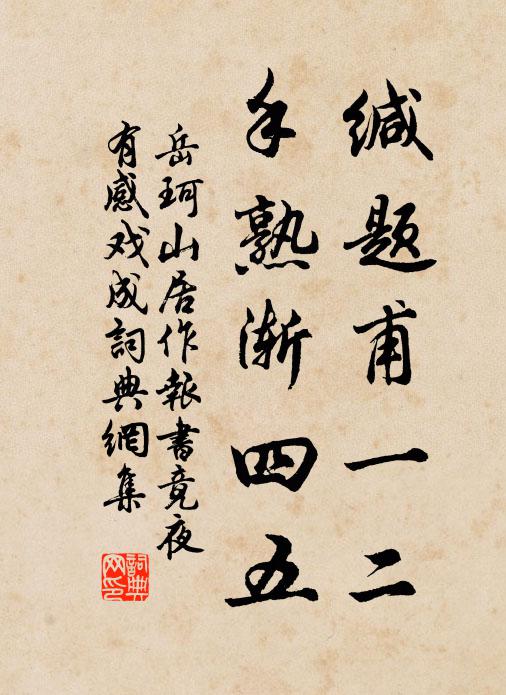 缄题甫一二
手熟渐四五
岳珂山居作報書竟夜
有感戏成詞典網集
詞典网印